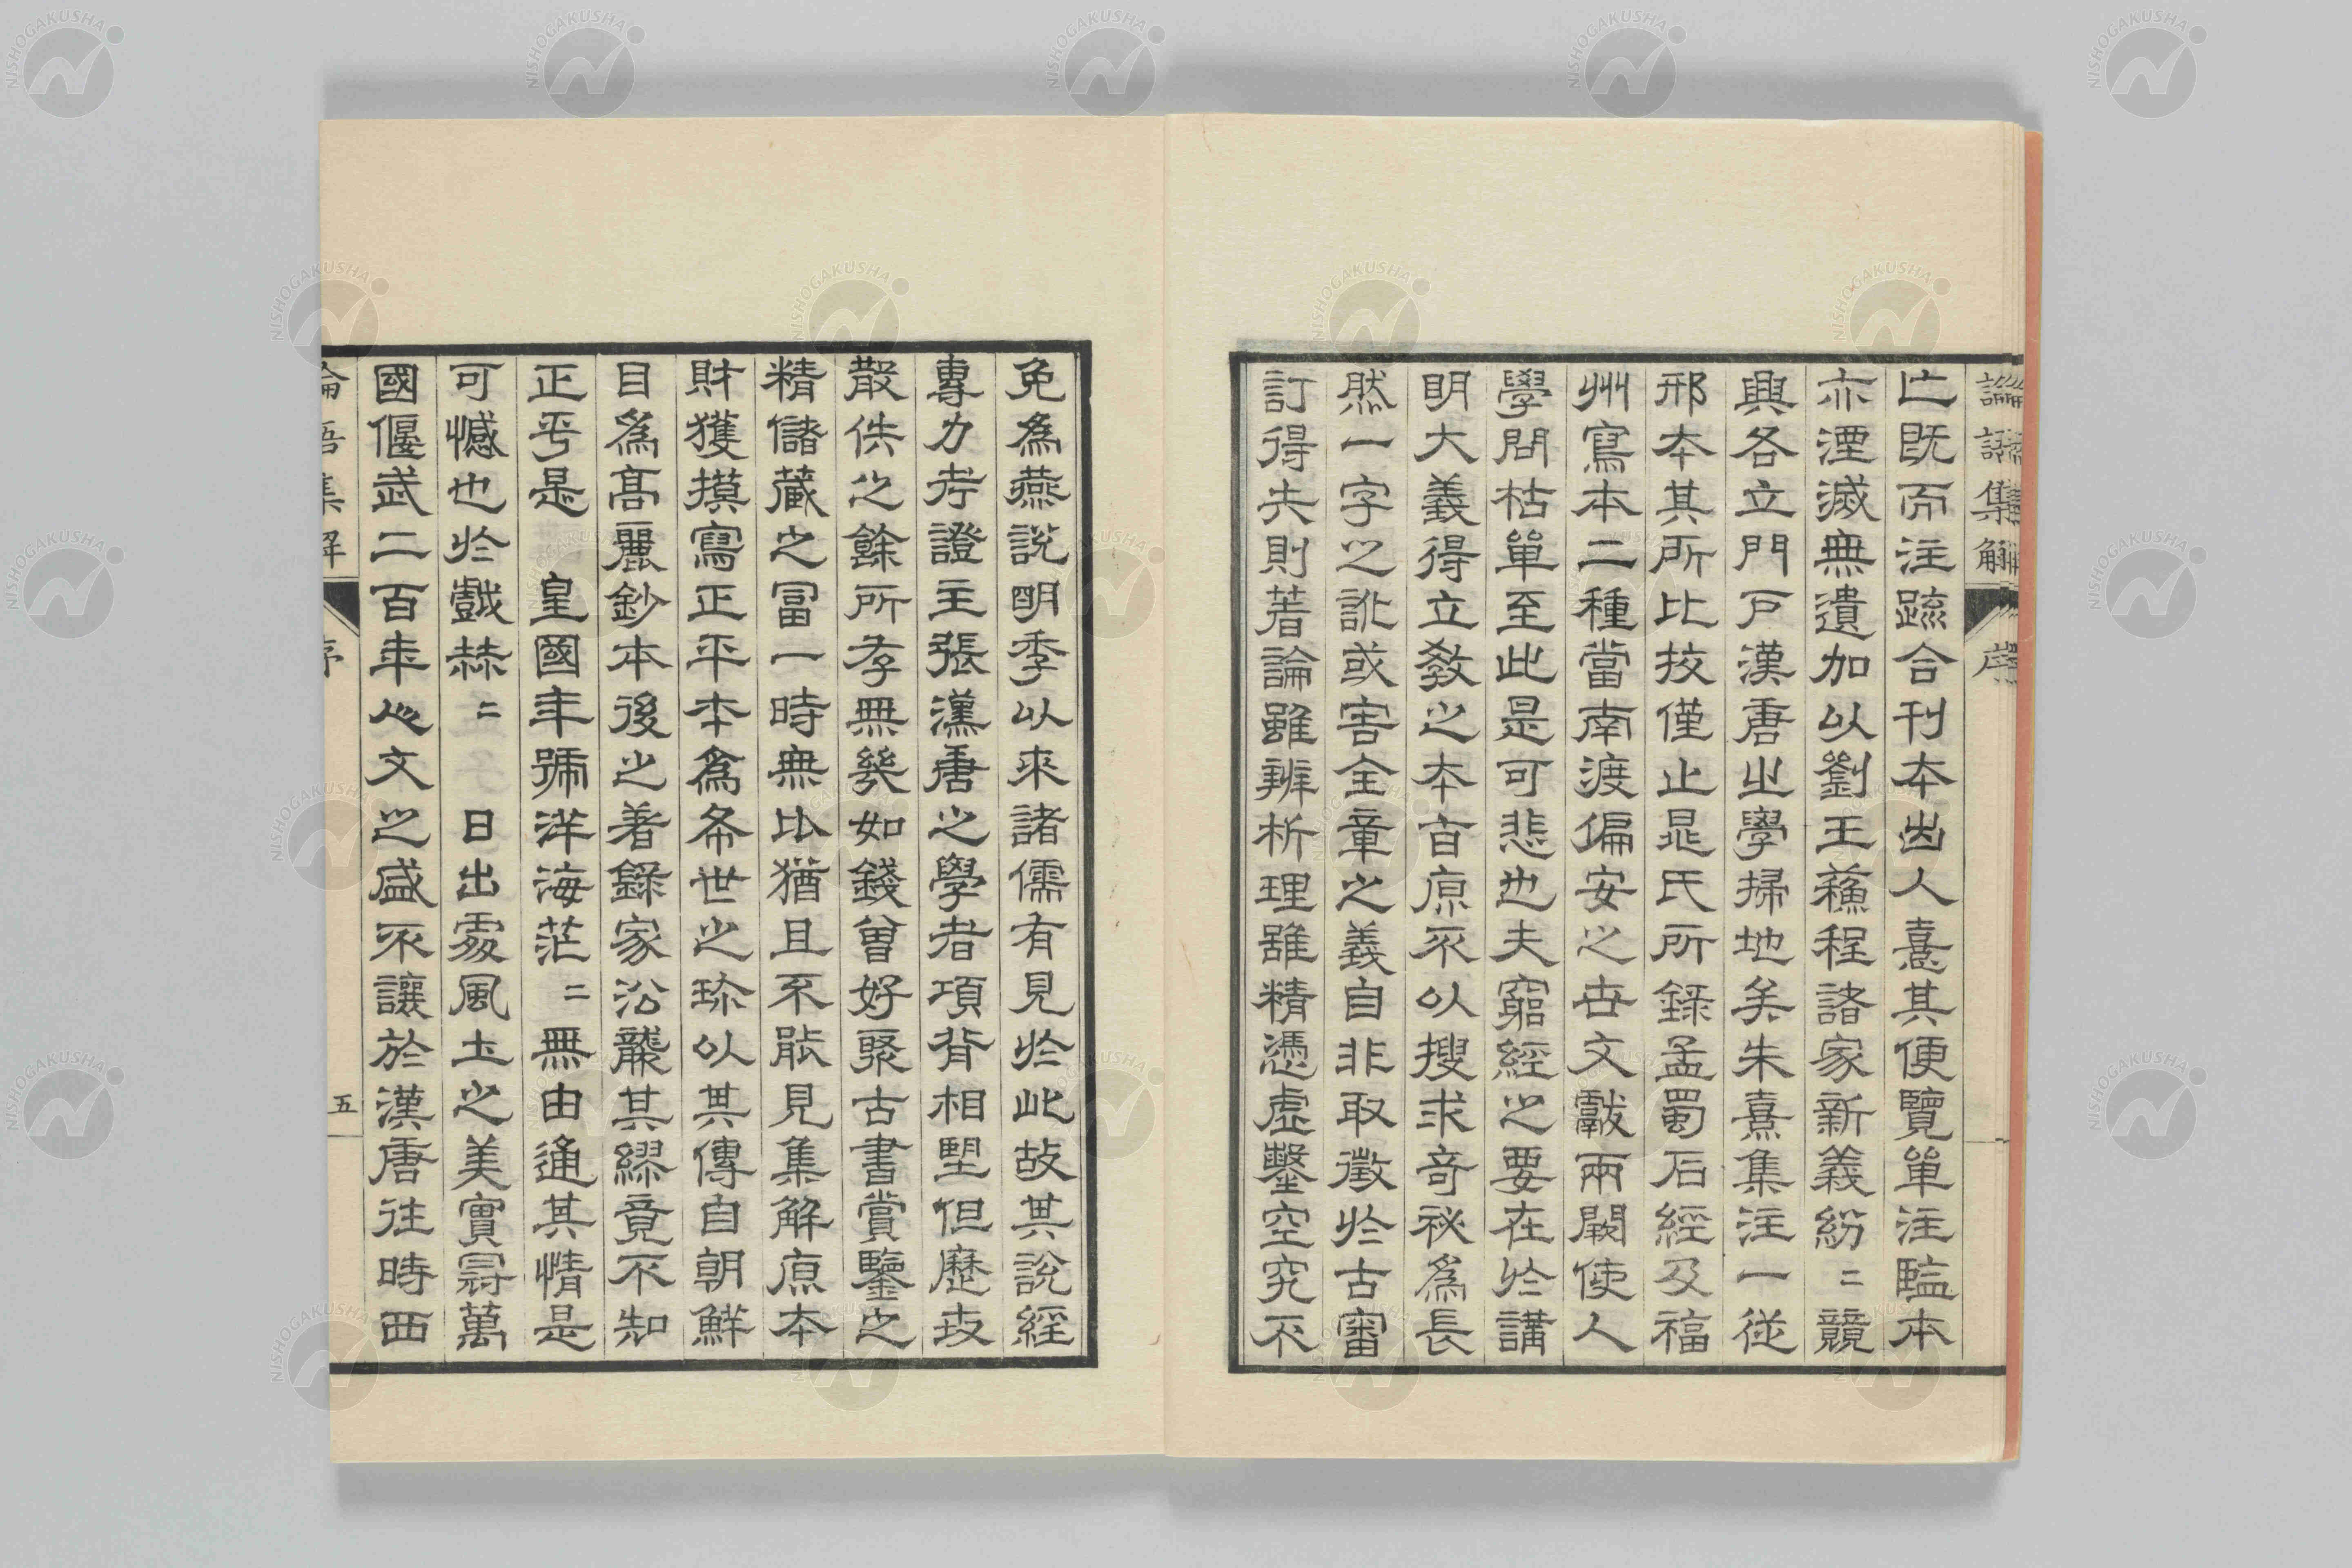 論語集解 序
亡既而注疏合刊本出人憙其便覽單注臨本
亦湮滅無遺加以劉王蘓程諸家新義紛〻競
興各立門戸漢唐㞢學掃地矣朱熹集注一從
邢本其所比挍僅止晁氏所錄孟蜀石經及福
州寫本二種當南渡偏安之世文獻兩闕使人
學問枯單至此是可悲也夫窮經之要在於講
明大義得立教之本百原不以搜求奇祕爲長
然一字之訛或害全章之義自非取徵於古審
訂得失則著論雖辨析理雖精憑虛鑿空究不
免爲燕說明季以來諸儒有見於此故其說經
專力考證主張漢唐之學者項背相望但歷世
散佚之餘所存無幾如錢曾好聚古書賞鑒之
精儲藏之冨一時無比猶且不能見集解原本
財獲摸寫正平本爲希世之珎以其傳自朝鮮
目爲高麗鈔本後之著錄家沿襲其繆竟不知
正平是 皇國年號洋海茫〻無由通其情是
可憾也於戲赫〻 日出處風土之美實冠萬
國偃武二百年人文之盛不讓於漢唐往時西
論語集解 序 五
NISHOGAKUSHA